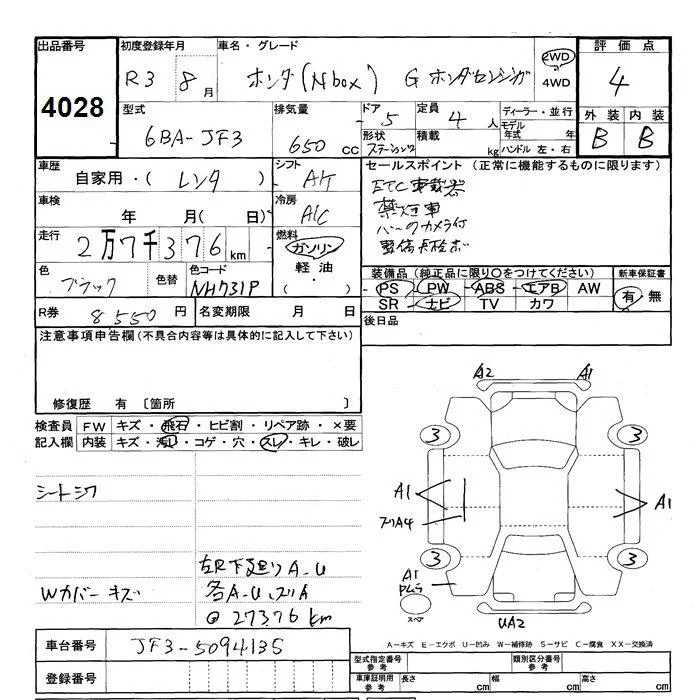 出品番号
4028
初度登録年月
R3 8月
車名・グレード
ホンダ(Nbox) G ホンダセンシング
2WD
4WD
評価点
4
型式
6BA-JF3
排気量
650cc
ドア
5
定員
4人
形状
ステーションワゴン
積載
kg
ディーラー・並行
モデル年式 年
ハンドル 左・右
外装 内装
B B
車歴
自家用・(レンタ)
シフト
AT
車検
年 月(日)
冷房
A/C
走行
2万7千376km
燃料
ガソリン
軽油
(・)
色
ブラック
色替
色コード
NH731P
R券
8550円
名変期限 月 日
セールスポイント(正常に機能するものに限ります)
ETC車載器
禁煙車
バックカメラ付
整備点検済
装備品(純正品に限り〇をつけてください)
PS PW ABS エアB AW
SR ナビ TV カワ
新車保証書
有・無
後日品
注意事項申告欄(不具合内容等は具体的に記入して下さい)
修復歴 有〔箇所 〕
検査員記入欄
FW キズ・飛石・ヒビ割・リペア跡・×要
内装 キズ・汚レ・コゲ・穴・スレ・キレ・破レ
シートシワ
左R下廻りA-U
Wカバーキズ
各A-U、スリA
@27376km
A2 A1
3 3
A1 A1
スリA4
3 3
A1
スペア
UA2
A-キズ E-エクボ U-凹み W-補修跡 S-サビ C-腐食 XX-交換済
車台番号
JF3-5094135
登録番号
型式指定番号参考
類別区分番号参考
車庫証明用参考
長さ cm 幅 cm 高さ cm